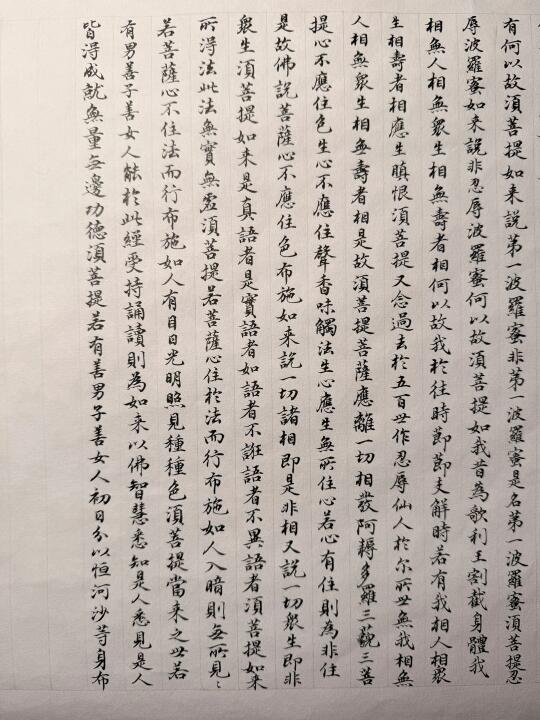 有何以故須菩提如来説第一波羅蜜非第一波羅蜜是名第一波羅蜜須菩提忍
辱波羅蜜如来説非忍辱波羅蜜何以故須菩提如我昔為歌利王割截身體我
相無人相無衆生相無壽者相何以故我於往時節節支解時若有我相人相衆
生相壽者相應生瞋恨須菩提又念過去於五百世作忍辱仙人於尔所世無我相無
人相無衆生相無壽者相是故須菩提菩薩應離一切相發阿耨多羅三藐三菩
提心不應住色生心不應住聲香味觸法生心應生無所住心若心有住則為非住
是故佛説菩薩心不應住色布施如来説一切諸相即是非相又説一切衆生即非
衆生須菩提如来是真語者是實語者如語者不誑語者不異語者須菩提如来
所得法此法無實無虛須菩提若菩薩心住於法而行布施如人入暗則無所見〻
若菩薩心不住法而行布施如人有目日光明照見種種色須菩提當来之世若
有男善子善女人能於此經受持誦讀則為如来以佛智慧悉知是人悉見是人
皆得成就無量無邊功德須菩提若有善男子善女人初日分以恒河沙等身布